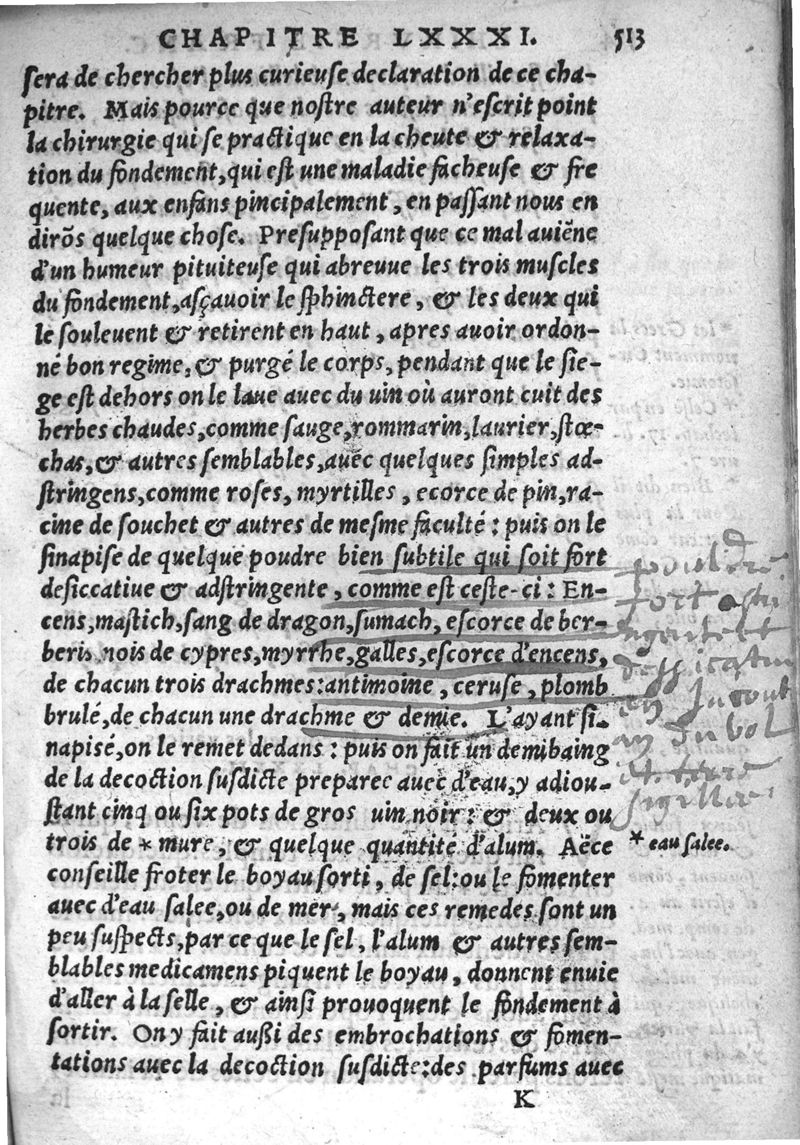 CHAPITRE LXXXI. 513
sera de chercher plus curieuse declaration de ce cha-
pitre. Mais pource que nostre auteur n'escrit point
la chirurgie qui se practique en la cheute & relaxa-
tion du fondement, qui est une maladie facheuse & fre
quente, aux enfans pincipalement, en passant nous en
dirõs quelque chose. Presupposant que ce mal auiẽne
d'un humeur pituiteuse qui abreuue les trois muscles
du fondement, asçauoir le sphinctere, & les deux qui
le souleuent & retirent en haut, apres auoir ordon-
né bon regime, & purgé le corps, pendant que le sie-
ge est dehors on le laue auec du uin où auront cuit des
herbes chaudes, comme sauge, rommarin, laurier, stœ-
chas, & autres semblables, auec quelques simples ad-
stringens, comme roses, myrtilles, ecorce de pin, ra-
cine de souchet & autres de mesme faculté : puis on le
sinapise de quelque poudre bien subtile qui soit fort
desiccatiue & adstringente, comme est ceste-ci : En-
cens, mastich, sang de dragon, sumach, escorce de ber-
beris, nois de cypres, myrrhe, galles, escorce d'encens,
de chacun trois drachmes: antimoine, ceruse, plomb
brulé, de chacun une drachme & demie. L'ayant si-
napisé, on le remet dedans : puis on fait un demibaing
de la decoction susdicte preparee auec d'eau, y adiou-
stant cinq ou six pots de gros uin noir : & deux ou
trois de * mure, & quelque quantité d'alum. Aëce
conseille froter le boyau sorti, de sel: ou le fomenter
auec d'eau salee, ou de mer, mais ces remedes sont un
peu suspects, par ce que le sel, l'alum & autres sem-
blables medicamens piquent le boyau, donnent enuie
d'aller à la selle, & ainsi prouoquent le fondement à
sortir. On y fait aussi des embrochations & fomen-
tations auec la decoction susdicte: des parfums auec
K
pouldre
fort
* eau salee.